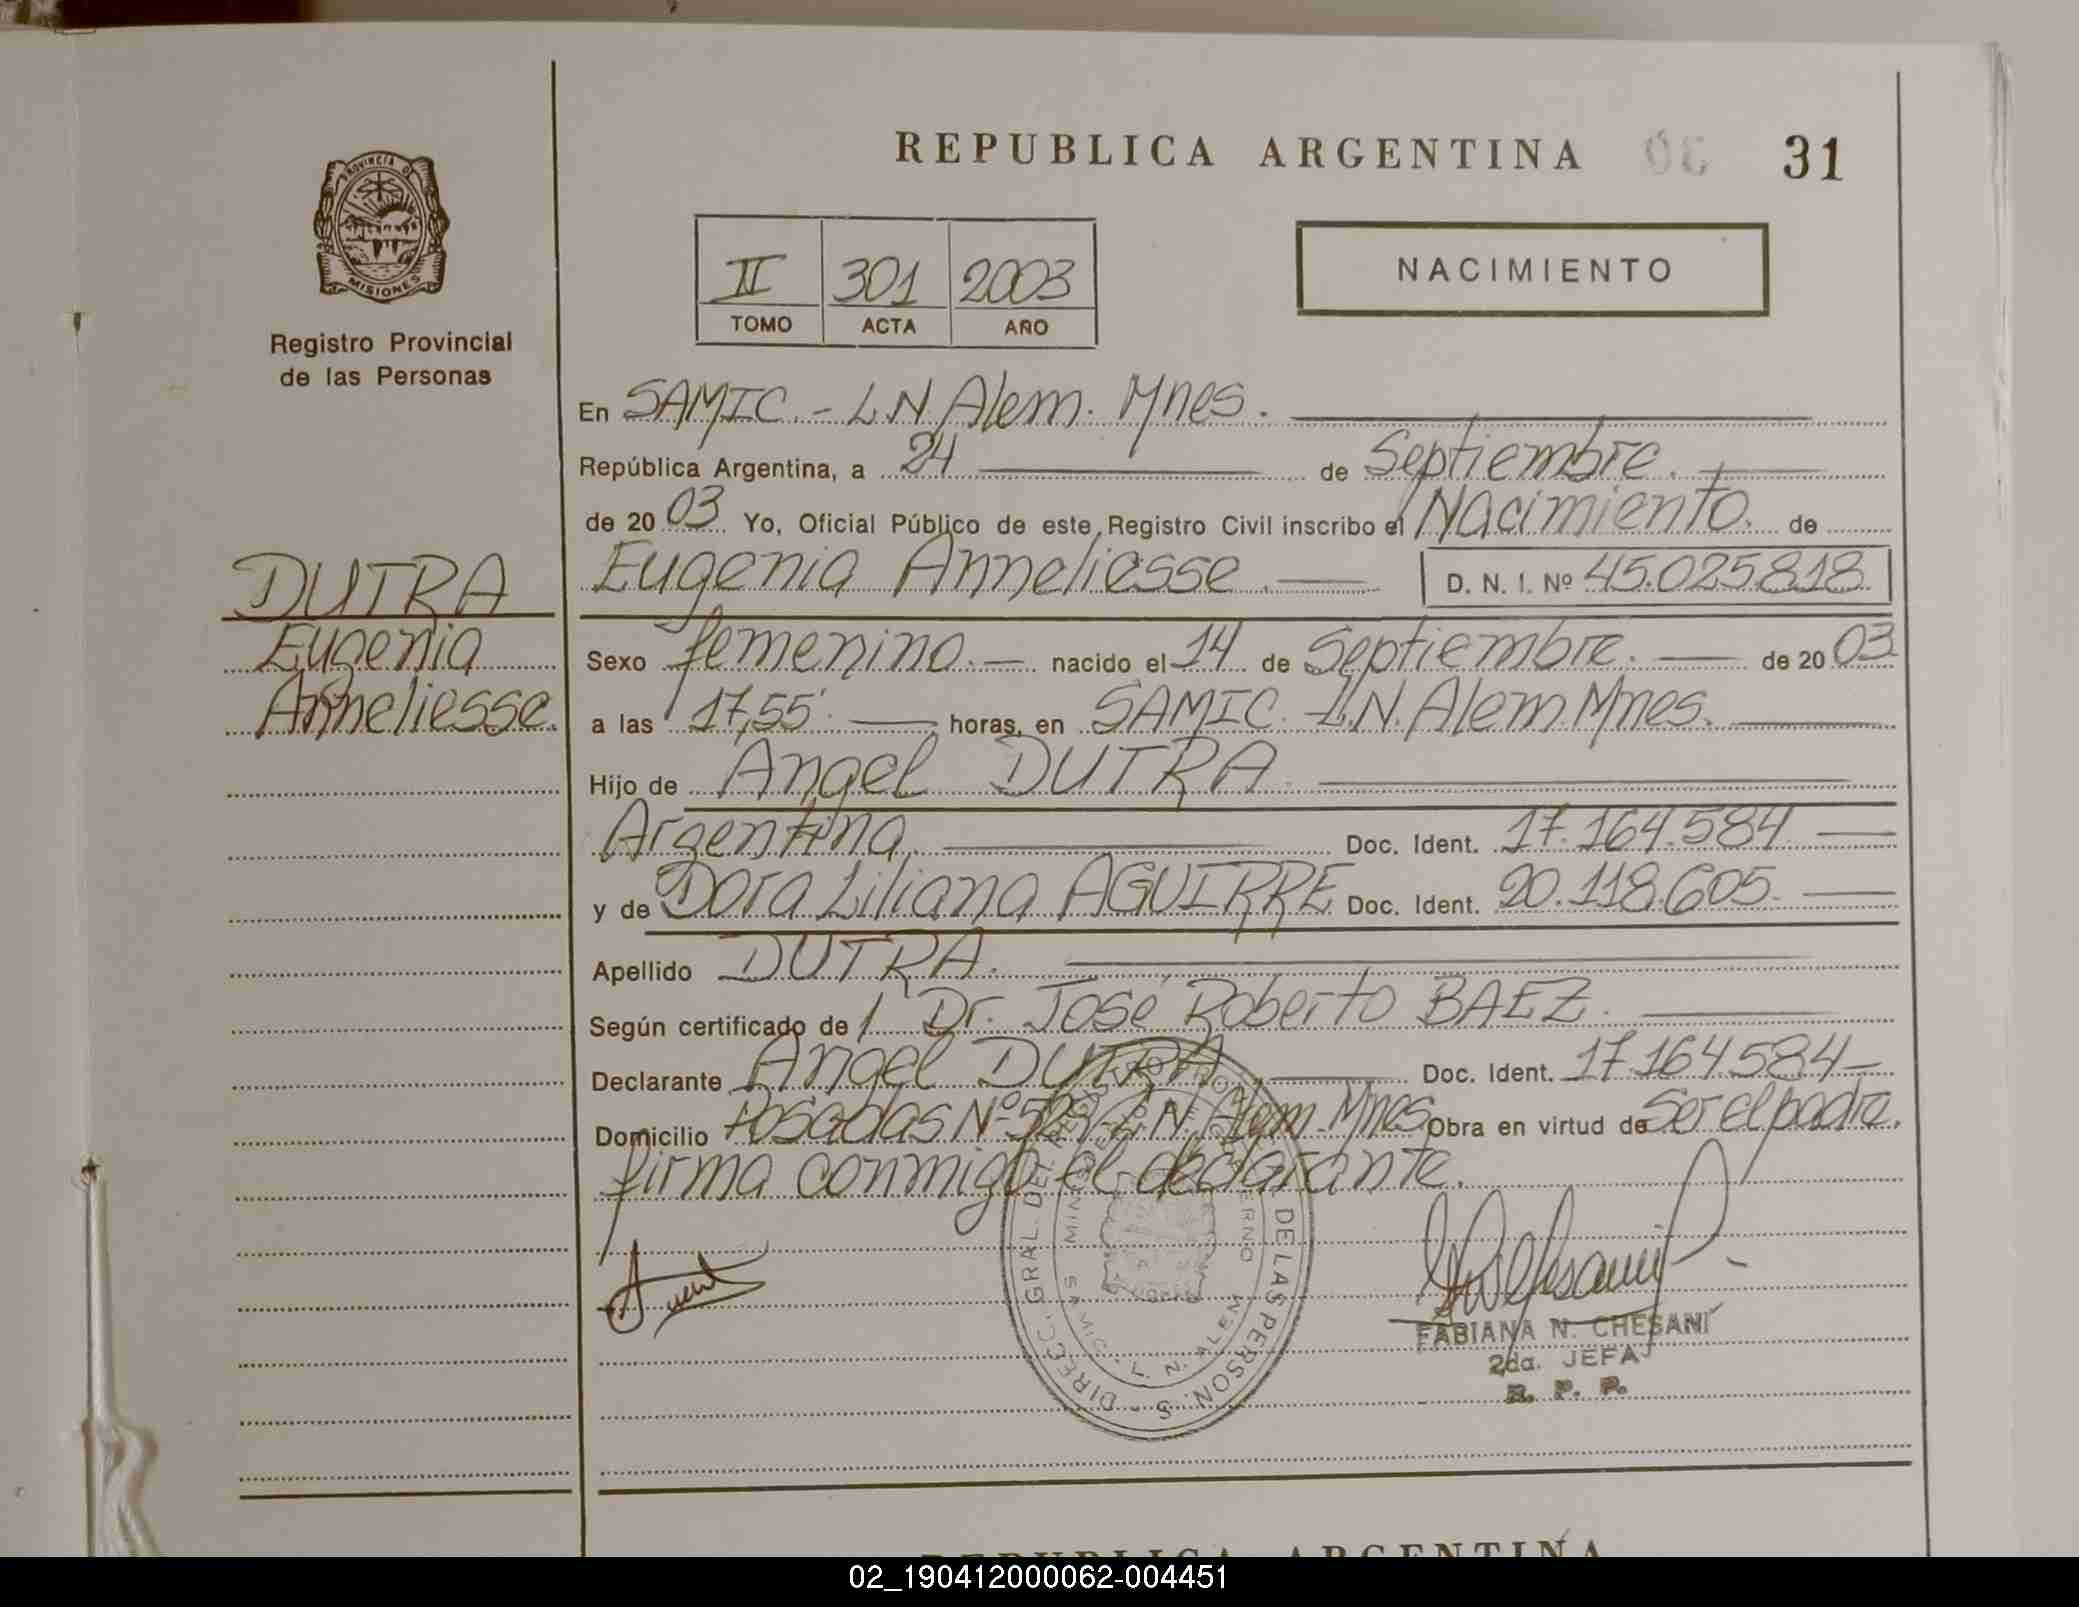 REPUBLICA ARGENTINA 31
PROVINCIA DE
MISIONES
Registro Provincial
de las Personas
II 301 2003
TOMO ACTA AÑO
NACIMIENTO
En SAMIC.- L.N. Alem. Mnes.
República Argentina, a 24 de Septiembre.
de 2003 Yo, Oficial Público de este Registro Civil inscribo el Nacimiento. de
Eugenia Anneliesse. D. N. I. Nº 45.025.818
DUTRA
Eugenia
Anneliesse.
Sexo femenino. nacido el 14 de Septiembre. de 2003
a las 17,55' horas, en SAMIC. L.N. Alem. Mnes.
Hijo de Angel DUTRA
Argentina. Doc. Ident. 17.164.584
y de Dora Liliana AGUIRRE Doc. Ident. 20.118.605.
Apellido DUTRA.
Según certificado de / Dr. José Roberto BAEZ.
Declarante Angel DUTRA Doc. Ident. 17.164.584
Domicilio Posadas Nº L.N. Alem. Mnes. Obra en virtud de Ser el padre.
firma conmigo el declarante.
DIREC. GRAL. DEL DE LAS PERSON.
SAMIC - L. N. ALEM
FABIANA N. CHESANI
2da. JEFA
R. P. P.
REPUBLICA ARGENTINA
02_190412000062-004451